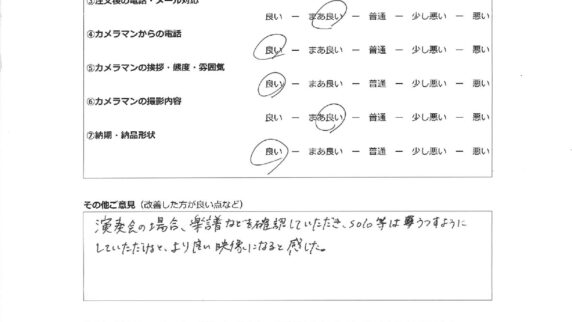 ③注文後の電話・メール対応
良い － まあ良い － 普通 － 少し悪い － 悪い
④カメラマンからの電話
良い － まあ良い － 普通 － 少し悪い － 悪い
⑤カメラマンの挨拶・態度・雰囲気
良い － まあ良い － 普通 － 少し悪い － 悪い
⑥カメラマンの撮影内容
良い － まあ良い － 普通 － 少し悪い － 悪い
⑦納期・納品形状
良い － まあ良い － 普通 － 少し悪い － 悪い
その他ご意見（改善した方が良い点など）
演奏会の場合、楽譜などを確認していただき、solo等はうつすように
していただけると、より良い映像になると感じた。